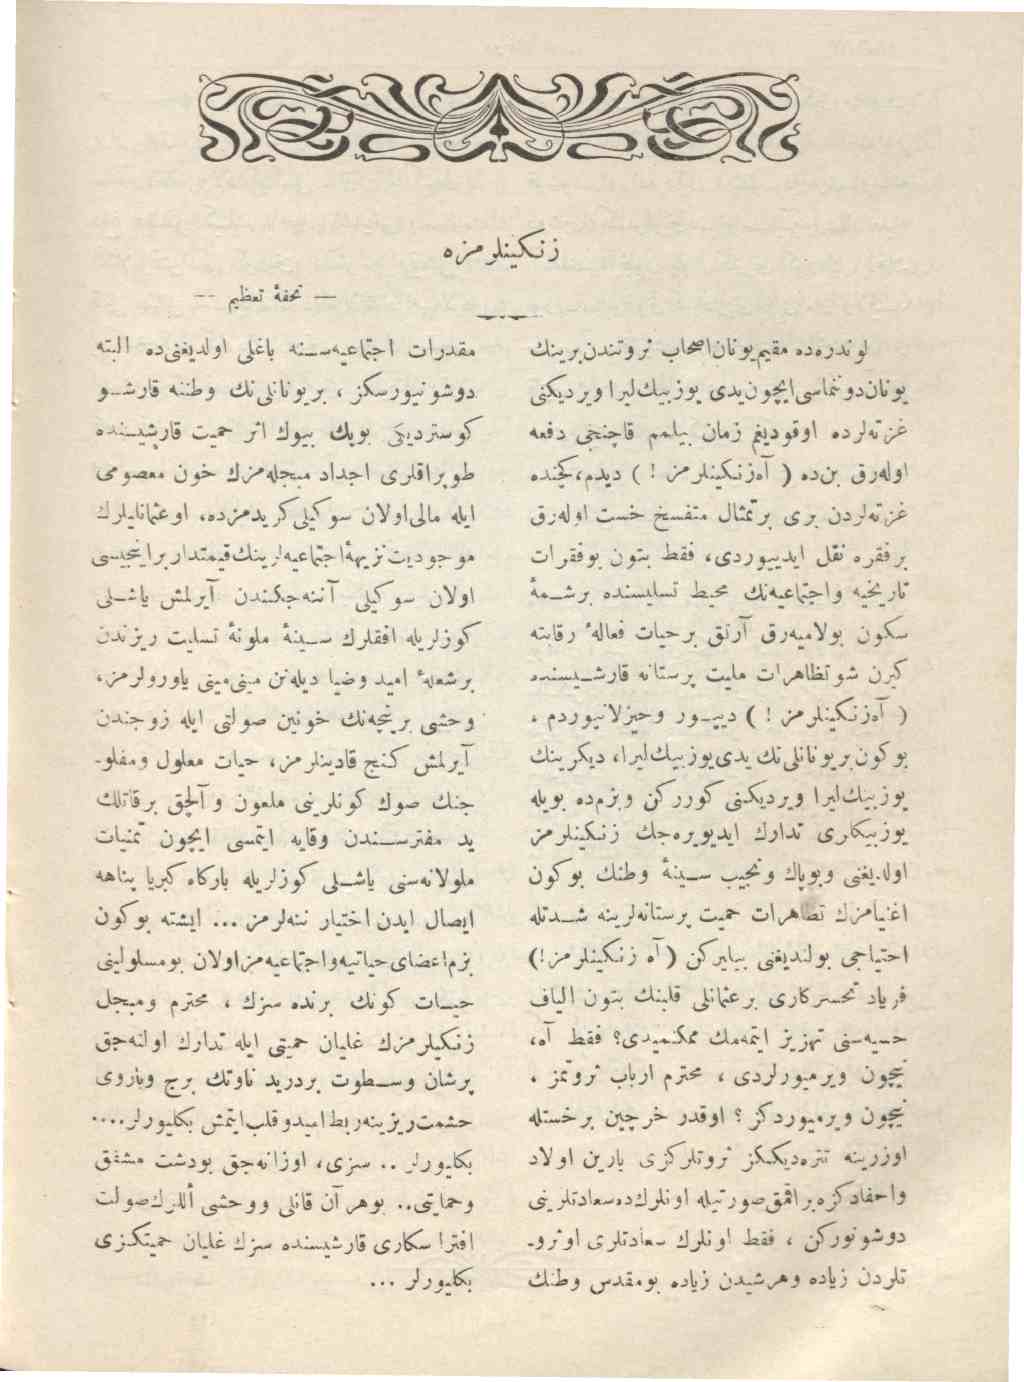 زنكينلرمزه
— تحفهٔ تعظيم —
لوندره‌ده مقيم يونان اصحاب ثروتندن برينك
يونان دونماسى ايچون يدى يوز بيك ليرا ويرديكنى
غزته‌لرده اوقوديغم زمان بيلمم قاچنجى دفعه
اوله‌رق بن‌ده ( آه زنكينلرمز ! ) ديدم، كچنده
غزته‌لردن برى بر تمثال متفسخ خست اوله‌رق
بر فقره نقل ايدييوردى، فقط بتون بو فقرات
تاريخيه واجتماعيه‌نك محيط تسليسنده بر شمهٔ
سكون بولاميه‌رق آرتق بر حيات فعالهٔ رقابته
كيرن شو تظاهرات مليت پرستانه قارشيسنده
( آه زنكينلرمز ! ) دييور وحيزلانيوردم .
بوكون بر يونانلى‌نك يدى يوز بيك ليرا، ديكرينك
يوز بيك ليرا ويرديكنى كورركن وبزم‌ده بويله
يوز بيكلرى تدارك ايديويره‌جك زنكينلرمز
اولديغنى وبو پاك ونجيب سينهٔ وطنك بوكون
اغنيامزك تظاهرات حميت پرستانه‌لرينه شدتله
احتياجى بولنديغنى بيليركن (آه زنكينلرمز!)
فرياد تحسركارى بر عثمانلى قلبنك بتون الياف
حسيه‌سنى تهزيز ايتمه‌مك ممكنميدى؟ فقط آه،
نيچون ويرميورلردى ، محترم ارباب ثروتمز ،
نيچون ويرميوردكز ؟ اوقدر خرچين بر خستله
اوزرينه تتره‌ديككز ثروتلركزى يارين اولاد
واحفادكزه براقمق صورتيله اونلرك‌ده سعادتلرينى
دوشونوركن ، فقط اونلرك سعادتلرى او ثرو-
تلردن زياده وهر شيدن زياده بو مقدس وطنك
مقدرات اجتماعيه‌سنه باغلى اولديغنى‌ده البته
دوشونيورسكز ، بر يونانلى‌نك وطننه قارشو
كوستردیكى بو پك بيوك اثر حميت قارشيسنده
طوپراقلرى اجداد مبجله‌مزك خون معصومى
ايله مالى اولان سوكيلى كريدمزده، او عثمانليلرك
موجوديت نزيههٔ اجتماعيه‌لرينك قيمتدار بر اينجيسى
اولان سوكيلى آننه‌جكندن آيرلمش ياشلى
كوزلريله افقلرك سينهٔ ملونهٔ تسليت ريزندن
بر شعلهٔ اميد وضيا ديله‌نن مينى‌مينى ياورولرمز،
وحشى بر پنچه‌نك خونين صولتى ايله زوجندن
آيرلمش كنج قادينلرمز، حيات معلول ومفلو-
جنك صوك كونلرينى ملعون و آلچق بر قاتلك
يد مفترسندن وقايه ايتمسى ايچون تمنيات
ملولانه‌سنى ياشلى كوزلريله باركاه كبريا پناهه
ايصال ايدن اختيار ننه‌لرمز ... ايشته بوكون
بزم اعضاى حياتيه واجتماعيه‌مز اولان بو مسلولينى
حيات كونك برنده سزك ، محترم ومبجل
زنكينلرمزك غليان حميتى ايله تدارك اولنه‌جق
پرشان وسطوت بر دريدناوتك برج وباروى
حشمت ريزينه ربط اميد و قلب ايتمش بكليورلر....
بكليورلر .. سزى، اوزانه‌جق بو دست مشفق
وحمايتى.. بو هر آن قانلى ووحشى اللرك صولت
افتراسكارى قارشيسنده سزك غليان حميتكزى
بكليورلر ...